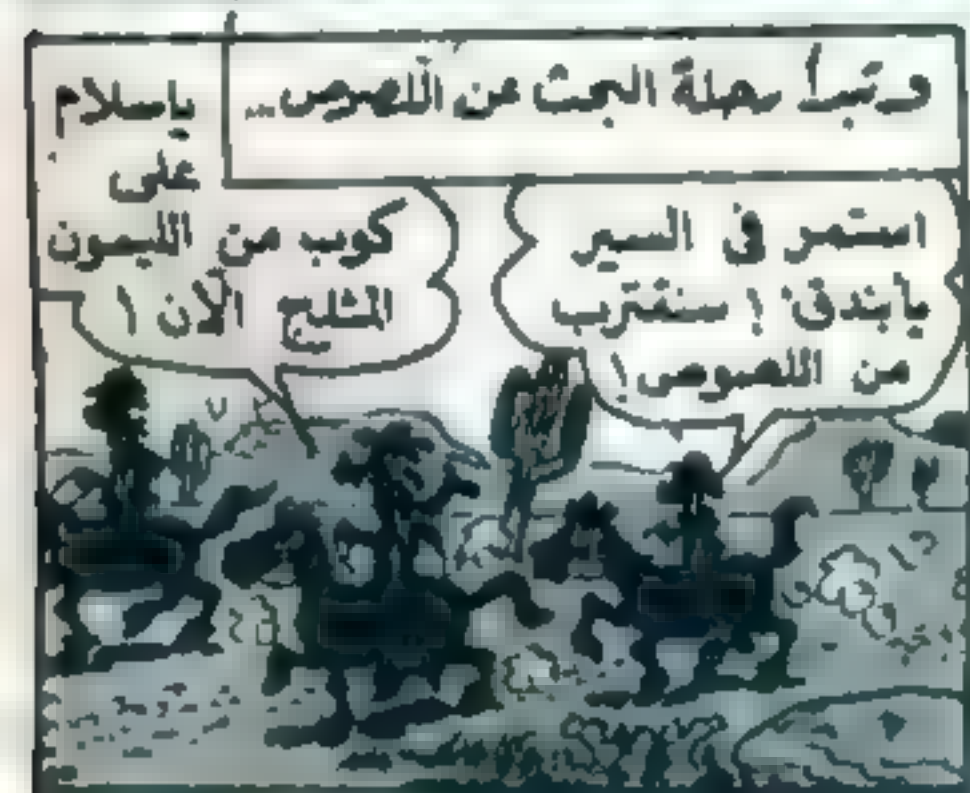 وتبدأ رحلة البحث عن اللصوص...
استمر فى السير
يابندق ! سنقترب
من اللصوص !
ياسلام
على
كوب من الليمون
المثلج الآن !